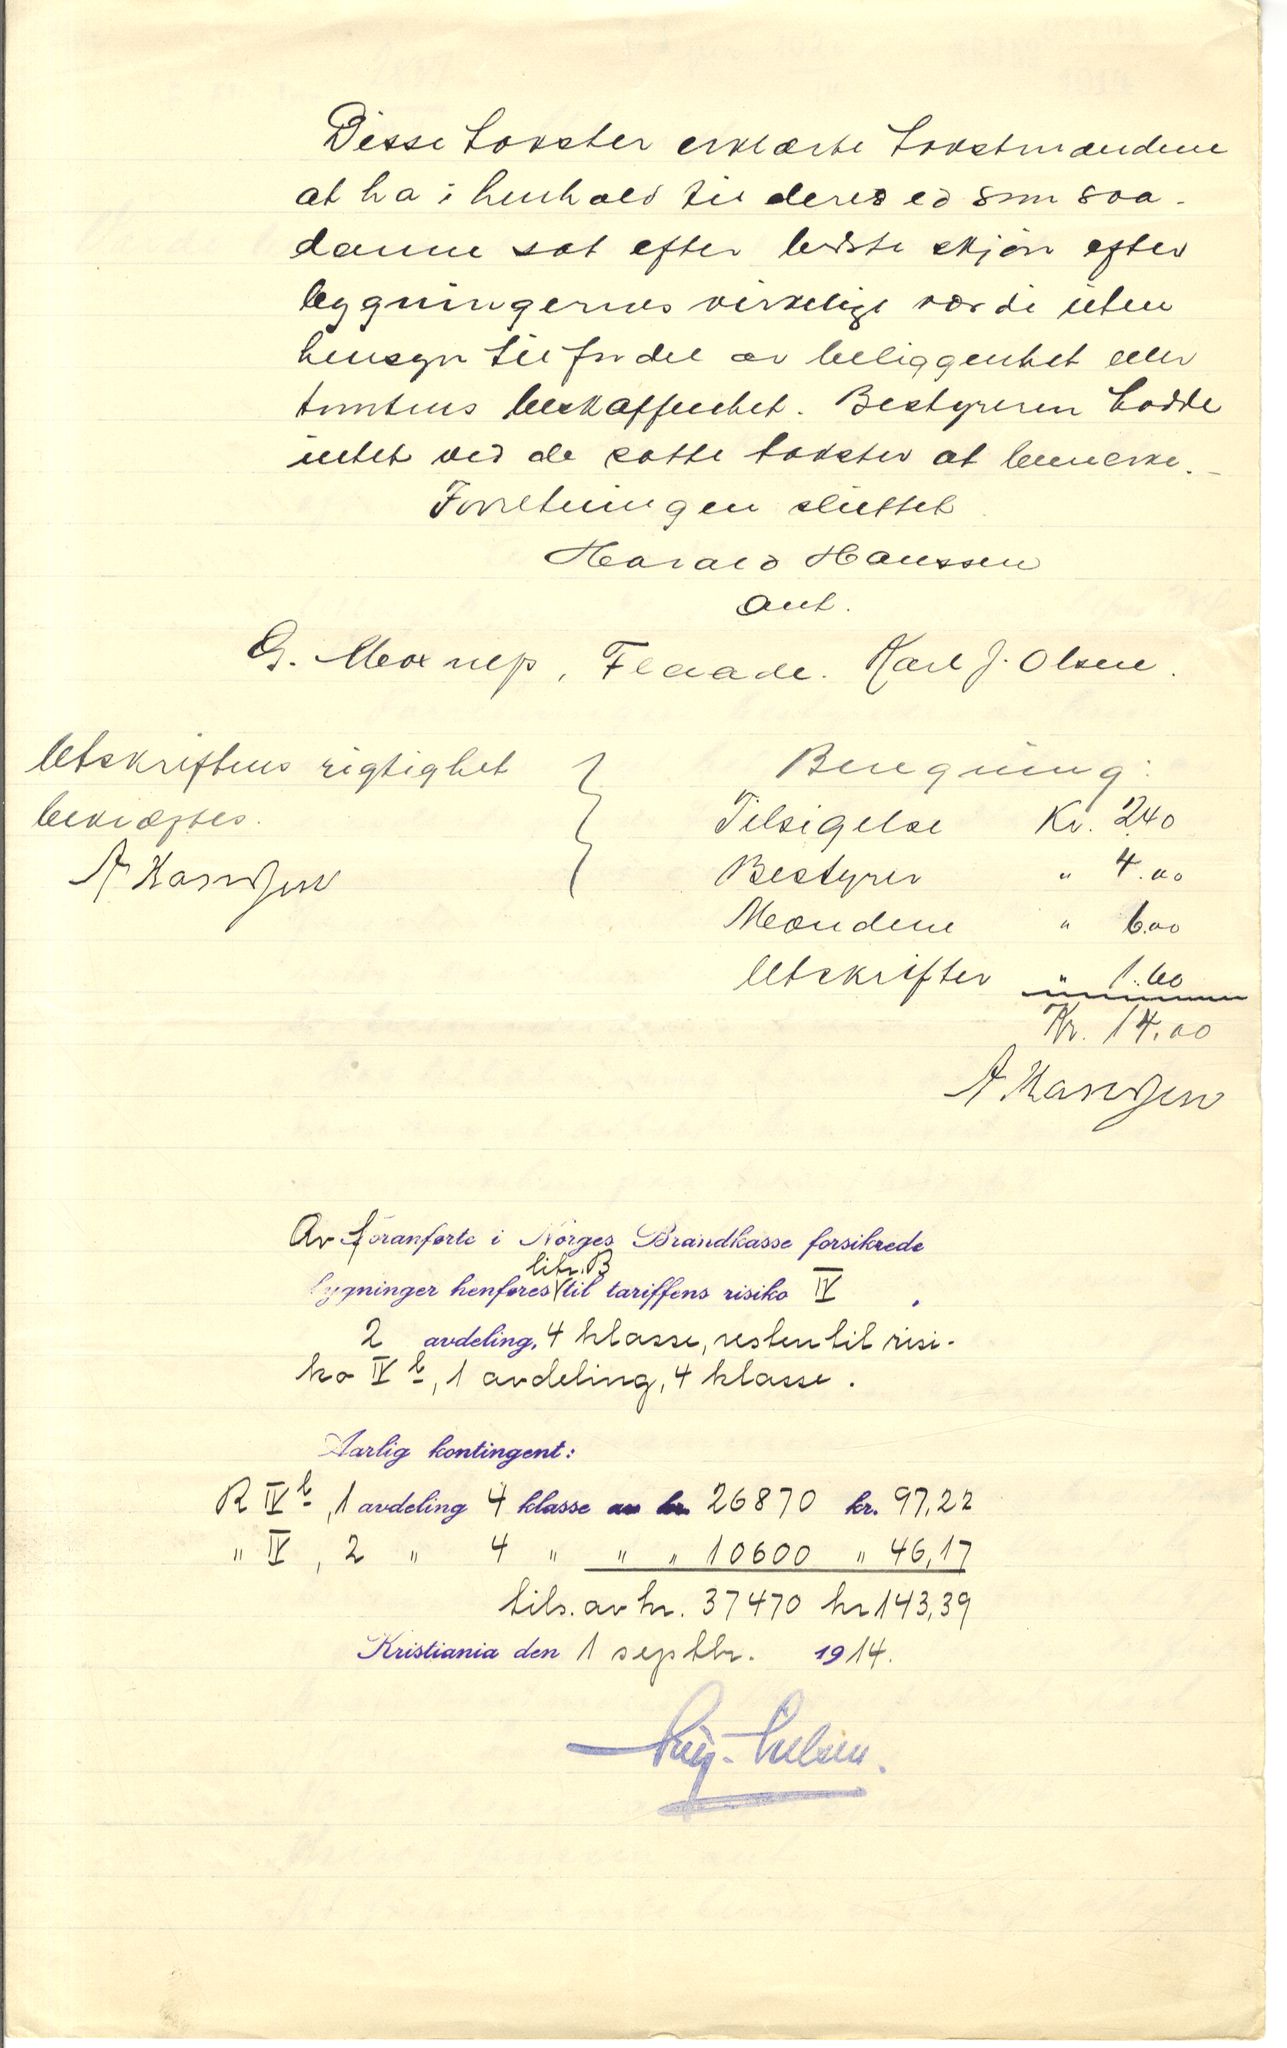 Disse takster erklærte takstmændene
at ha i henhold til deres ed som saa-
danne sat efter bedste skjøn efter
bygningernes virkelige værdi uten
hensyn til fordel av beliggenhet eller
tomtens beskaffenhet. Bestyreren hadde
intet ved de satte takster at bemerke.-
Forretningen sluttet
Harald Hanssen
ant.
G. Maarnes, Flaade. Karl J. Olsen.
Utskriftens rigtighet
bekræftes.
A Karlsen
Beregning:
Tilsigelse Kr. 2.40
Bestyrer " 4.00
Mændene " 6.00
Utskrifter " 1.60
Kr. 14.00
A. Karlsen
Av foranførte i Norges Brandkasse forsikrede
bygninger henføres litr. B til tariffens risiko IV
2 avdeling, 4 klasse, resten til risi-
ko IV b, 1 avdeling, 4 klasse.
Aarlig kontingent:
R IV b, 1 avdeling 4 klasse av kr. 26870 kr. 97,22
" IV, 2 " 4 " " " 10600 " 46,17
tils. av kr. 37470 kr 143,39
Kristiania den 1 septbr. 1914.